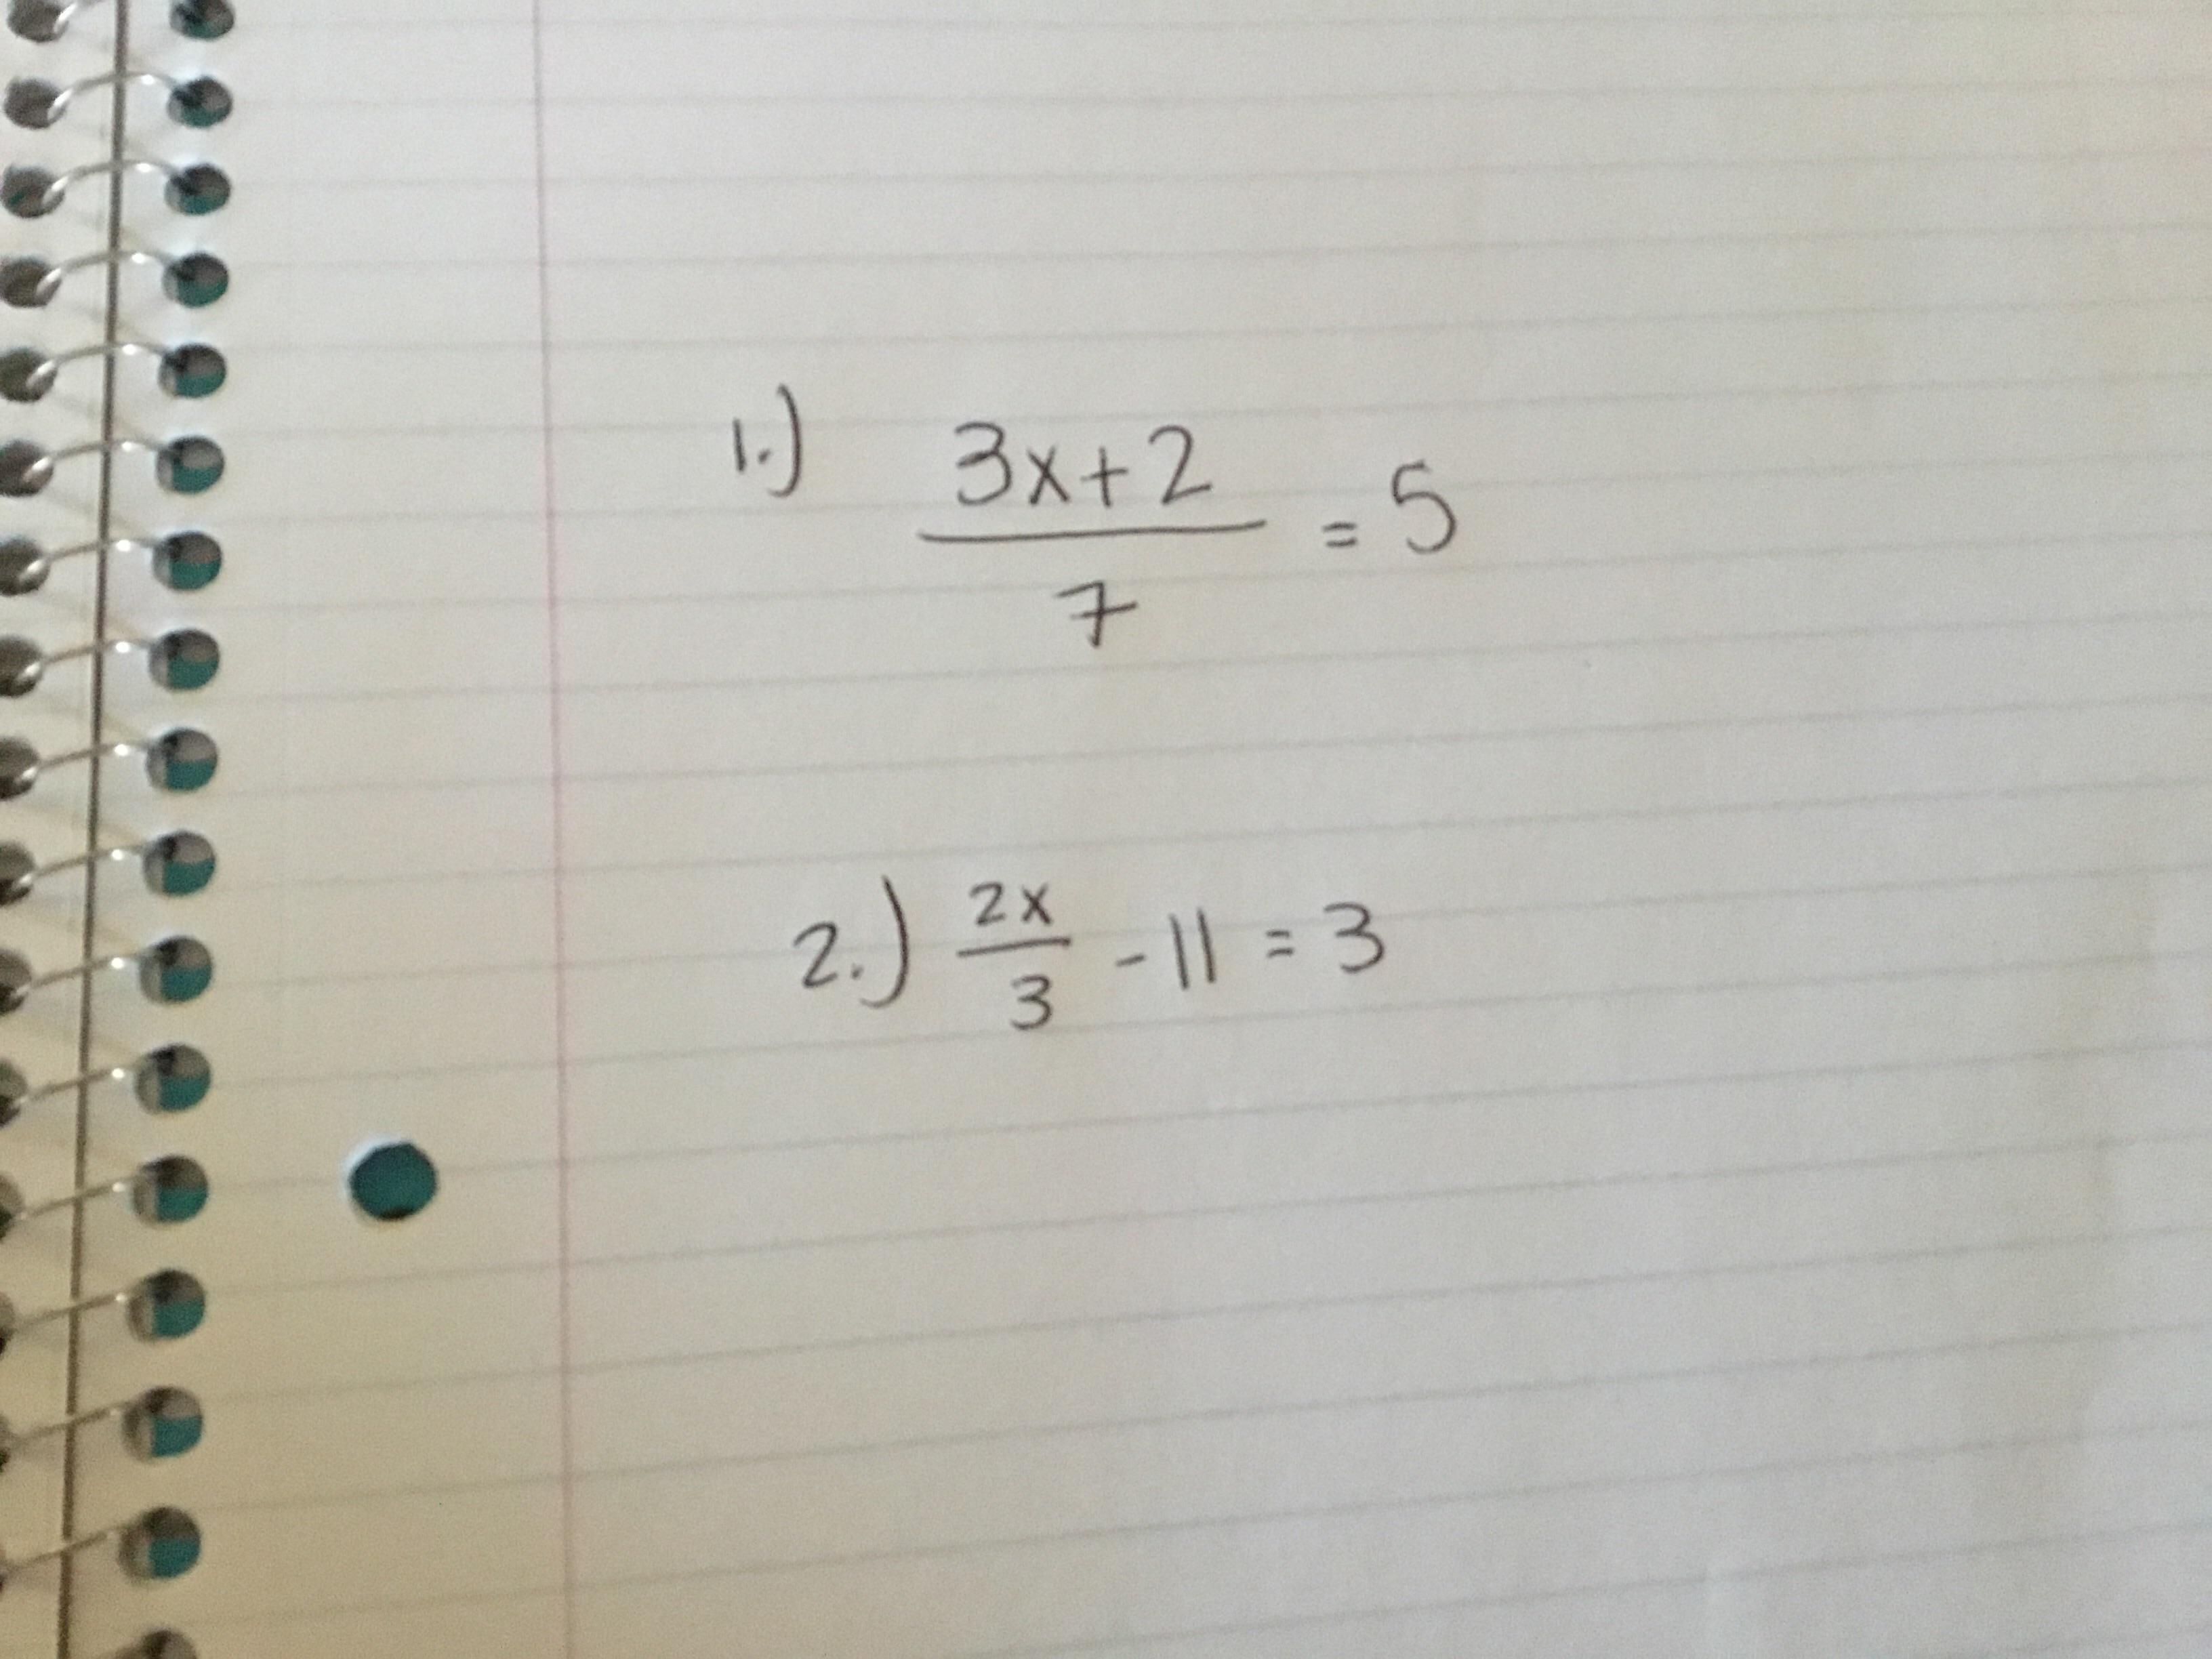 1.) 3x+2
7 = 5
2.) 2x
3 - 11 = 3